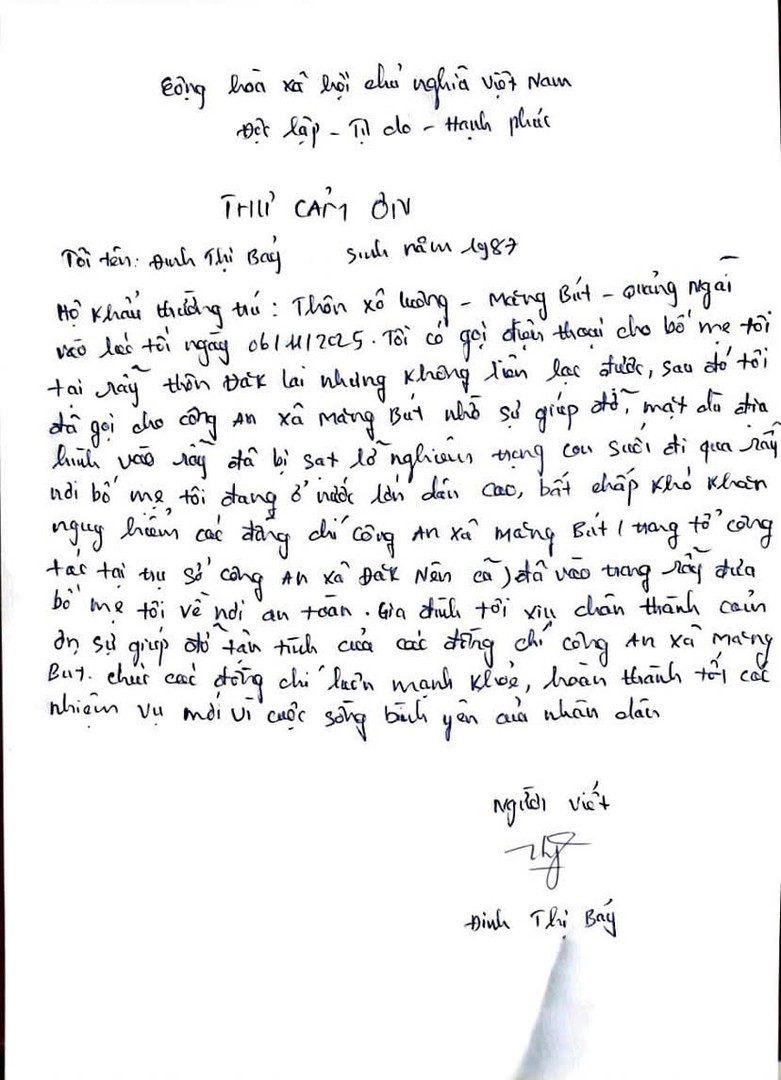 Cộng hòa xã hội chủ nghĩa Việt Nam
Độc lập - Tự do - Hạnh phúc
THƯ CẢM ƠN
Tôi tên: Đinh Thị Bảy sinh năm 1987
Hộ khẩu thường trú: Thôn xô luông - Măng Bút - Quảng Ngãi
vào lúc tối ngày 06/11/2025. Tôi có gọi điện thoại cho bố mẹ tôi
tại rẫy thôn Đăk lai nhưng không liên lạc được, sau đó tôi
đã gọi cho công An xã Măng Bút nhờ sự giúp đỡ, mặt dù địa
hình vào rẫy đã bị sạt lỡ nghiêm trọng con suối đi qua rẫy
nơi bố mẹ tôi đang ở nước lớn dân cao, bất chấp khó khăn
nguy hiểm các đồng chí công An xã Măng Bút (trong tổ công
tác tại trụ sở công An xã Đăk Nên cũ) đã vào trong rẫy đưa
bố mẹ tôi về nơi an toàn. Gia đình tôi xin chân thành cảm
ơn sự giúp đỡ tận tình của các đồng chí công An xã Măng
But. chúc các đồng chí luôn mạnh khỏe, hoàn thành tốt các
nhiệm vụ mới vì cuộc sống bình yên của nhân dân
Người viết
Đinh Thị Bảy